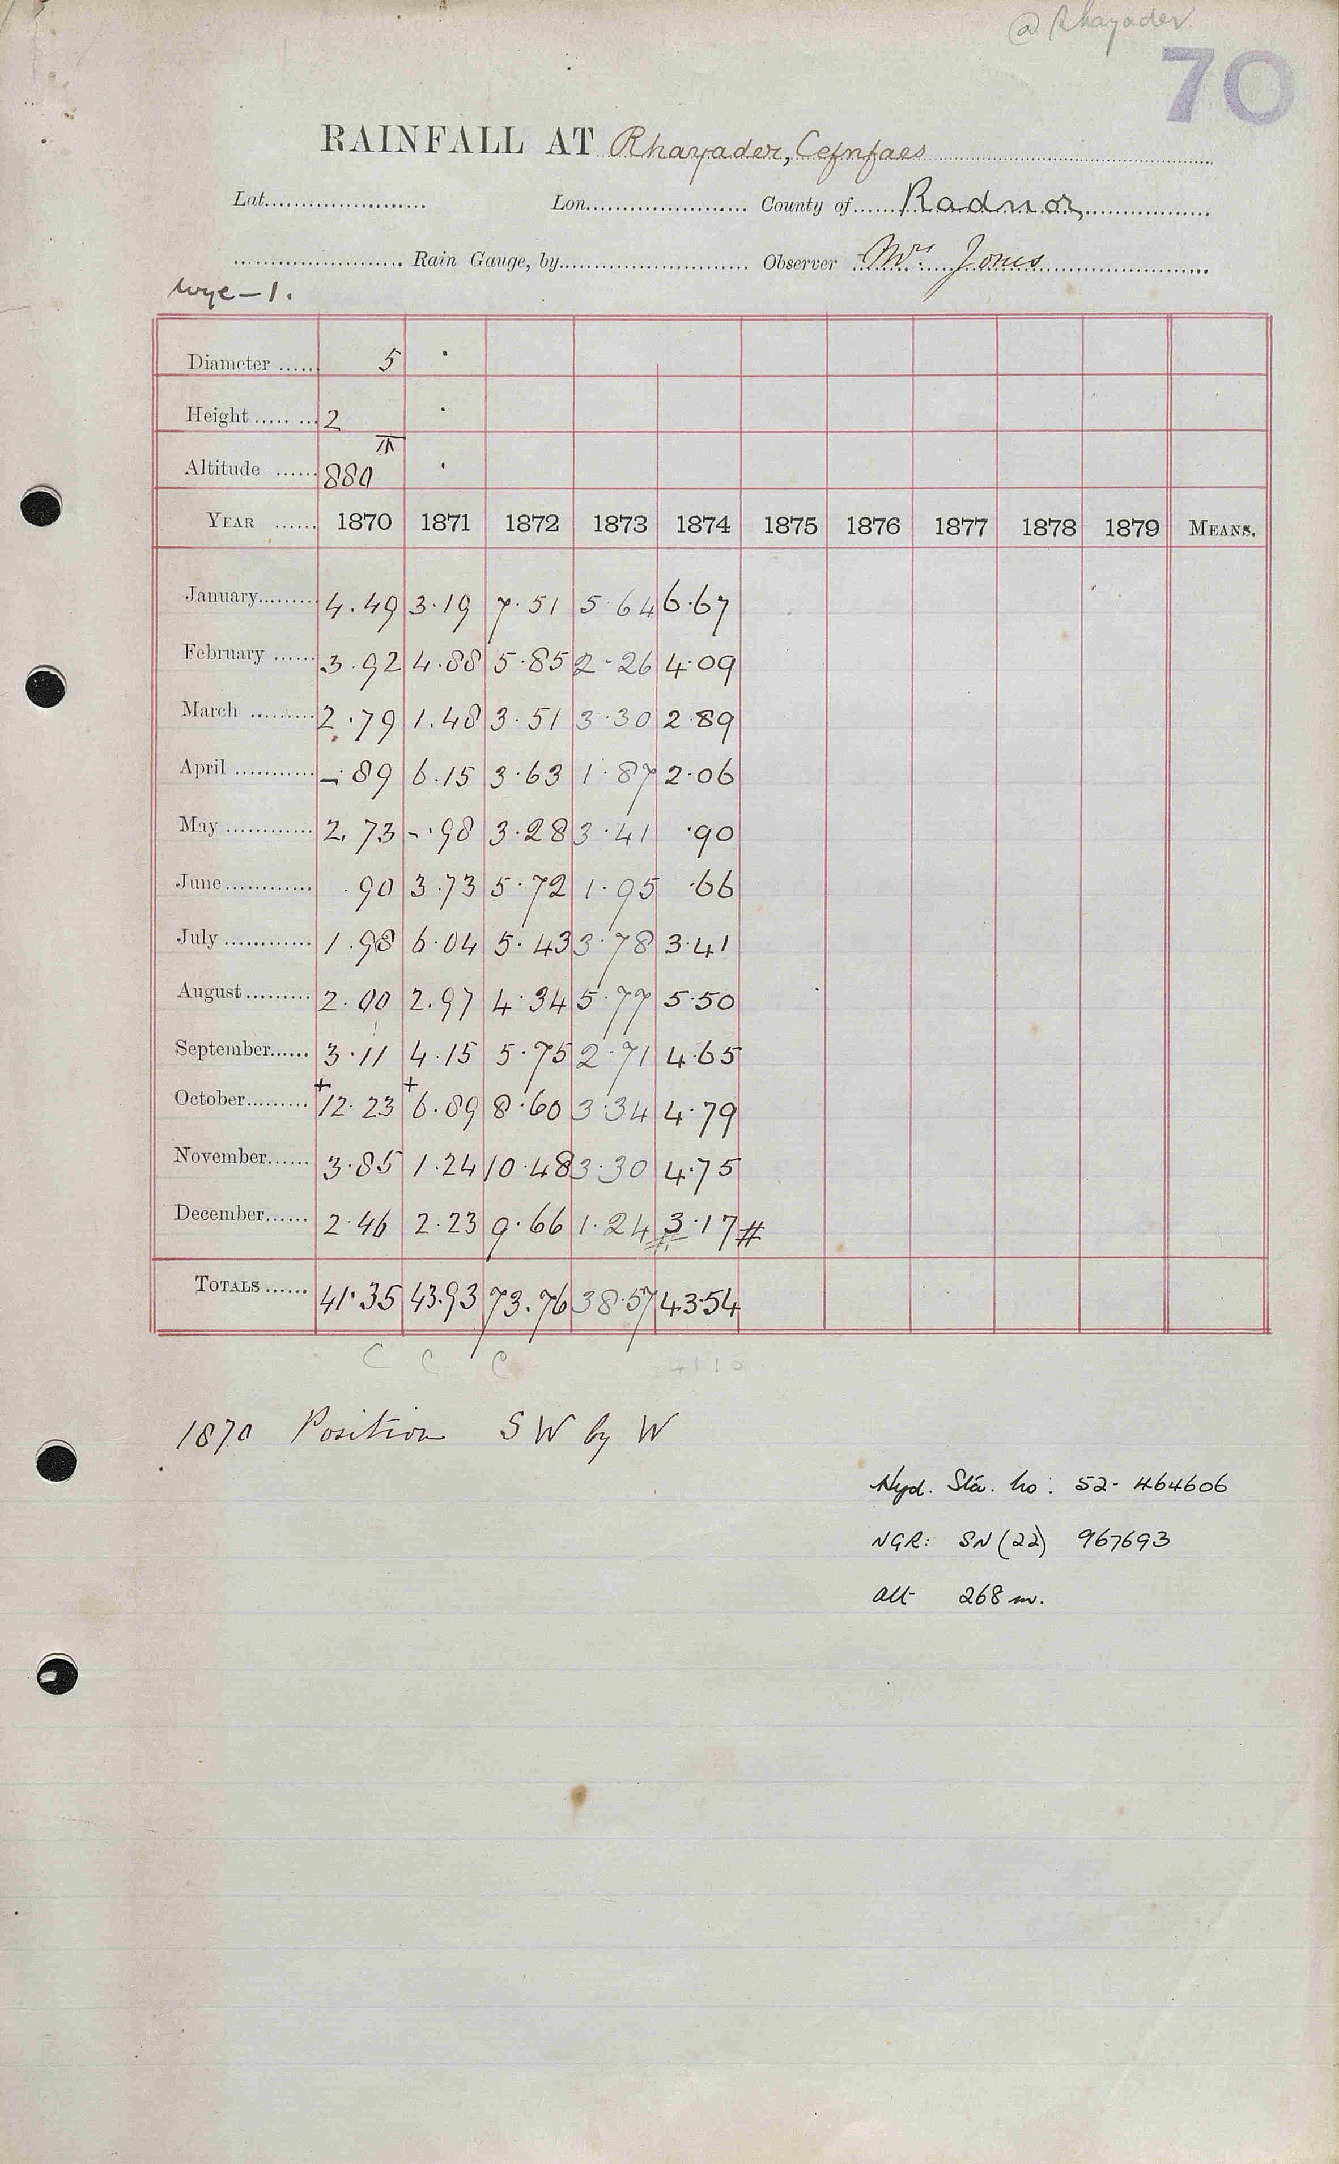 @ Rhayader
70
RAINFALL AT Rhayader, Cefnfaes
Lat. Lon. County of Radnor
Rain Gauge, by Observer Mrs Jones
Wye-1.
Diameter 5 .
Height 2 .
Altitude 880 .
YEAR 1870 1871 1872 1873 1874 1875 1876 1877 1878 1879 MEANS.
January 4.49 3.19 7.51 5.64 6.67
February 3.92 4.88 5.85 2.26 4.09
March 2.79 1.48 3.51 3.30 2.89
April -.89 6.15 3.63 1.87 2.06
May 2.73 -.98 3.28 3.41 .90
June .90 3.73 5.72 1.95 .66
July 1.98 6.04 5.43 3.78 3.41
August 2.00 2.97 4.34 5.77 5.50
September 3.11 4.15 5.75 2.71 4.65
October +12.23 +6.89 8.60 3.34 4.79
November 3.85 1.24 10.48 3.30 4.75
December 2.46 2.23 9.66 1.24 3.17#
TOTALS 41.35 43.93 73.76 38.57 43.54
C C C
1870 Position SW by W
Hyd. Sta. No: 52-464606
NGR: SN (22) 967693
alt 268 m.